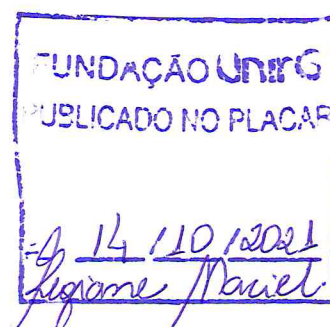 FUNDAÇÃO UnirG
PUBLICADO NO PLACAR
14/10/2021
Maciel